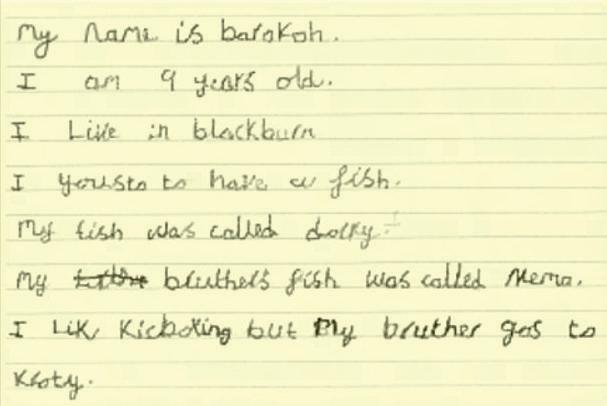 My name is barakah.
I am 9 years old.
I Live in blackburn
I yousto to have a fish.
My fish was called dorky.
My bruthers fish was called Memo.
I Lik Kickboxing but My bruther gos to
Kroty.